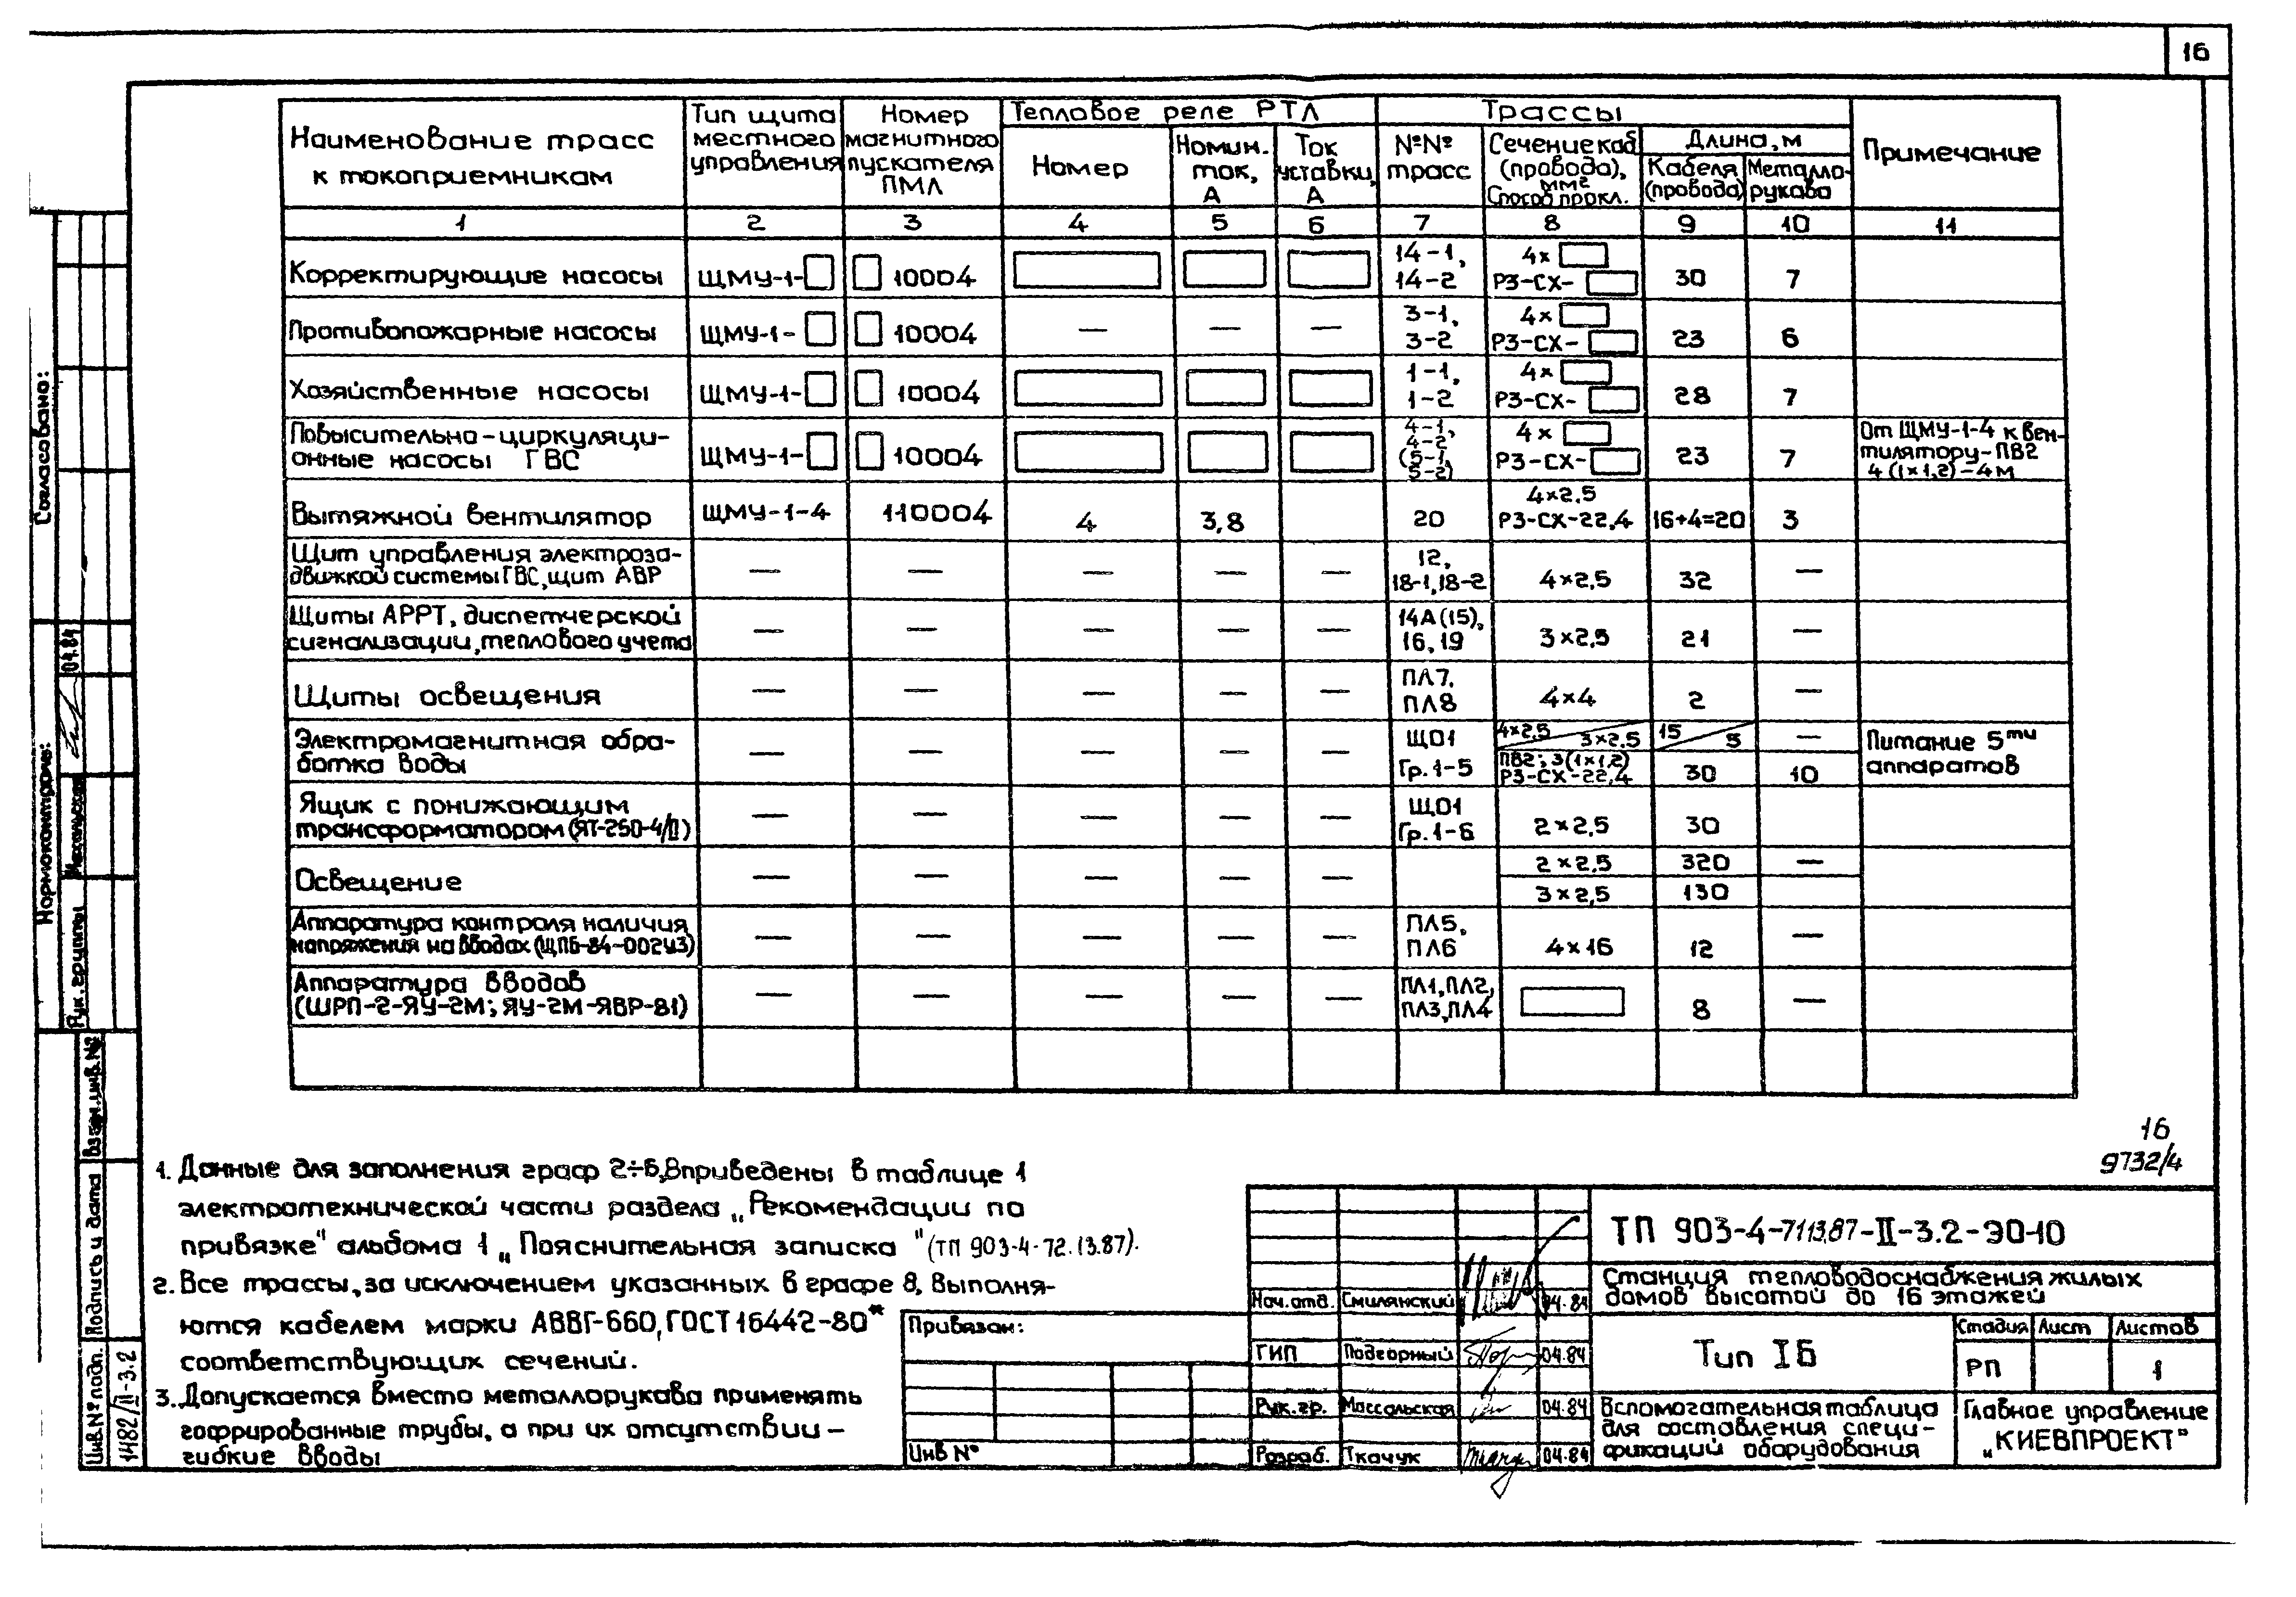 16
Наименование трасс к токоприемникам
Тип щита местного управления
Номер магнитного пускателя ПМЛ
Тепловое реле РТЛ
Номер
Номин. ток, А
Ток уставки, А
Трассы
№№ трасс
Сечение каб. (провода), мм2 Способ прокл.
Длина, м
Кабеля (провода)
Металло-рукава
Примечание
1 2 3 4 5 6 7 8 9 10 11
Корректирующие насосы ЩМУ-1- 10004 14-1, 14-2 4х РЗ-СХ- 30 7
Противопожарные насосы ЩМУ-1- 10004 — — — 3-1, 3-2 4х РЗ-СХ- 23 6
Хозяйственные насосы ЩМУ-1- 10004 1-1, 1-2 4х РЗ-СХ- 28 7
Повысительно-циркуляци-
онные насосы ГВС ЩМУ-1- 10004 4-1, 4-2 (5-1, 5-2) 4х РЗ-СХ- 23 7
От ЩМУ-1-4 к вен-
тилятору-ПВ2
4(1×1,2)-4м
Вытяжной вентилятор ЩМУ-1-4 110004 4 3,8 20 4×2,5 РЗ-СХ-22,4 16+4=20 3
Щит управления электроза-
движкой системы ГВС, щит АВР — — — — — 12, 18-1, 18-2 4×2,5 32 —
Щиты АРРТ, диспетчерской
сигнализации, теплового учета — — — — — 14А(15), 16, 19 3×2,5 21 —
Щиты освещения — — — — — ПЛ7, ПЛ8 4×4 2 —
Электромагнитная обра-
ботка воды — — — — — ЩО1 Гр. 1-5 4×2,5 3×2,5 15 5 —
ПВ2; 3(1×1,2) РЗ-СХ-22,4 30 10
Питание 5ти
аппаратов
Ящик с понижающим
трансформатором (ЯТ-250-4/II) — — — — — ЩО1 Гр. 1-6 2×2,5 30
Освещение — — — — — 2×2,5 320 —
3×2,5 130
Аппаратура контроля наличия
напряжения на вводах (ЩПБ-84-002У3) — — — — — ПЛ5, ПЛ6 4×16 12 —
Аппаратура вводов
(ШРП-2-ЯУ-2М; ЯУ-2М-ЯВР-81) — — — — — ПЛ1, ПЛ2, ПЛ3, ПЛ4 8 —
16
9732/4
1. Данные для заполнения граф 2÷6,8 приведены в таблице 1
электротехнической части раздела „Рекомендации по
привязке" альбома 1 „Пояснительная записка" (ТП 903-4-72.13.87).
2. Все трассы, за исключением указанных в графе 8, выполня-
ются кабелем марки АВВГ-660, ГОСТ 16442-80*
соответствующих сечений.
3. Допускается вместо металлорукава применять
гофрированные трубы, а при их отсутствии -
гибкие вводы
Привязан:
Инв №
Нач. отд. Смилянский 04.84
ГИП Подгорный 04.84
Рук. гр. Массальская 04.84
Разраб. Ткачук 04.84
ТП 903-4-71.13.87-II-3.2-ЭО-10
Станция тепловодоснабжения жилых
домов высотой до 16 этажей
Тип IБ
Стадия Лист Листов
РП 1
Вспомогательная таблица
для составления специ-
фикаций оборудования
Главное управление
„КИЕВПРОЕКТ"
Согласовано:
Нормоконтроль:
Рук. группы 04.84
Взам. инв. №
Подпись и дата
Инв № подл.
1482/II-3.2